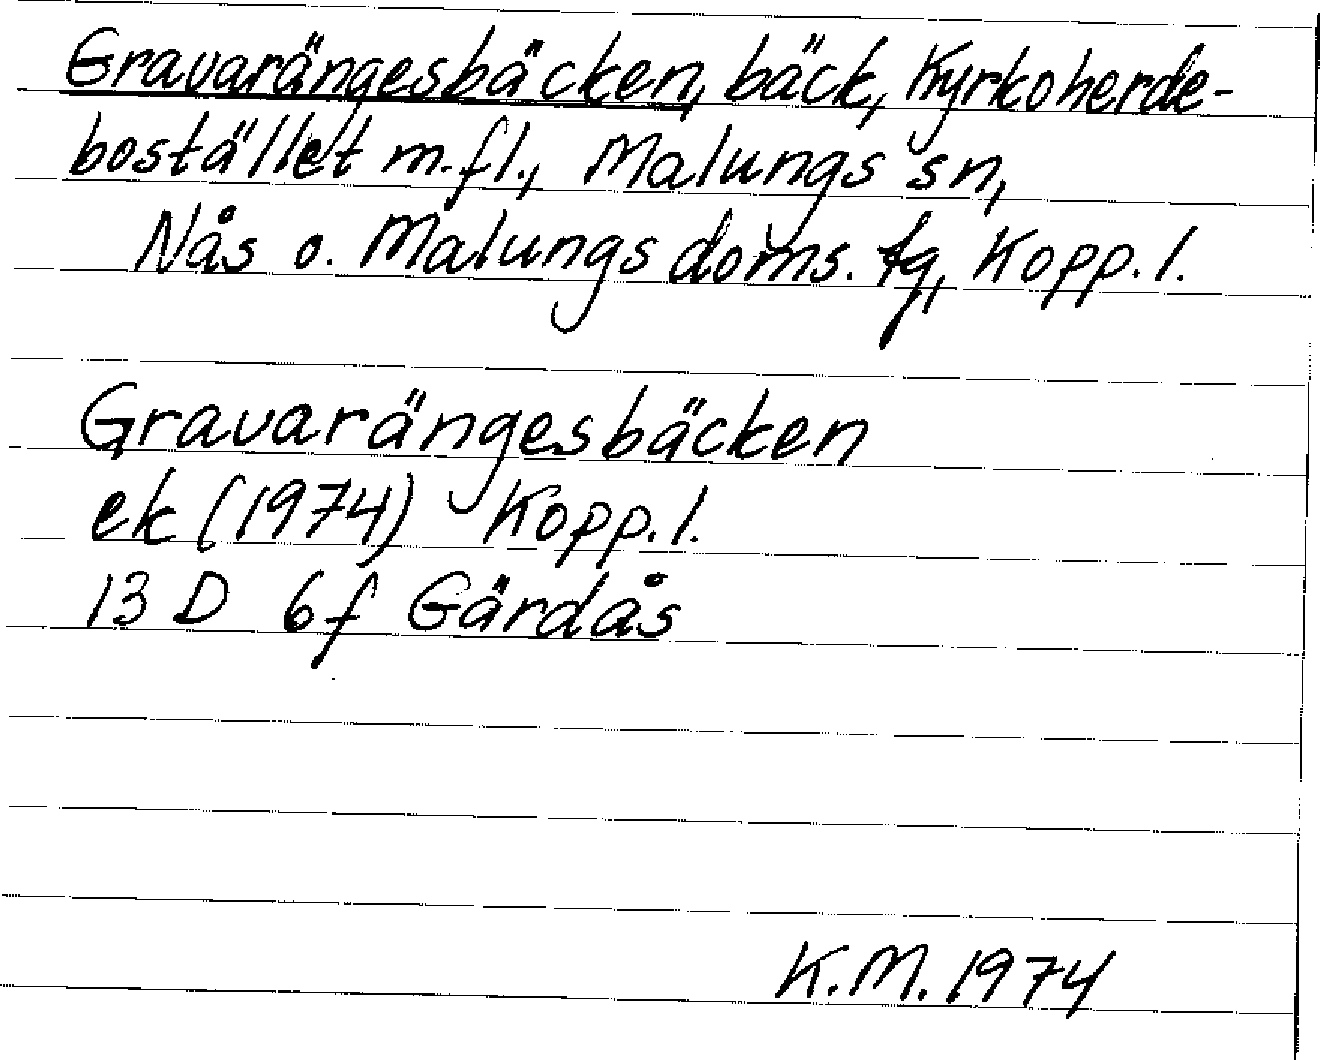 Gravarängesbäcken, bäck, Kyrkoherde-
bostället m.fl., Malungs sn,
Nås o. Malungs doms. fg, Kopp. l.
Gravarängesbäcken
ek (1974) Kopp. l.
13 D 6f Gärdås
K.M. 1974